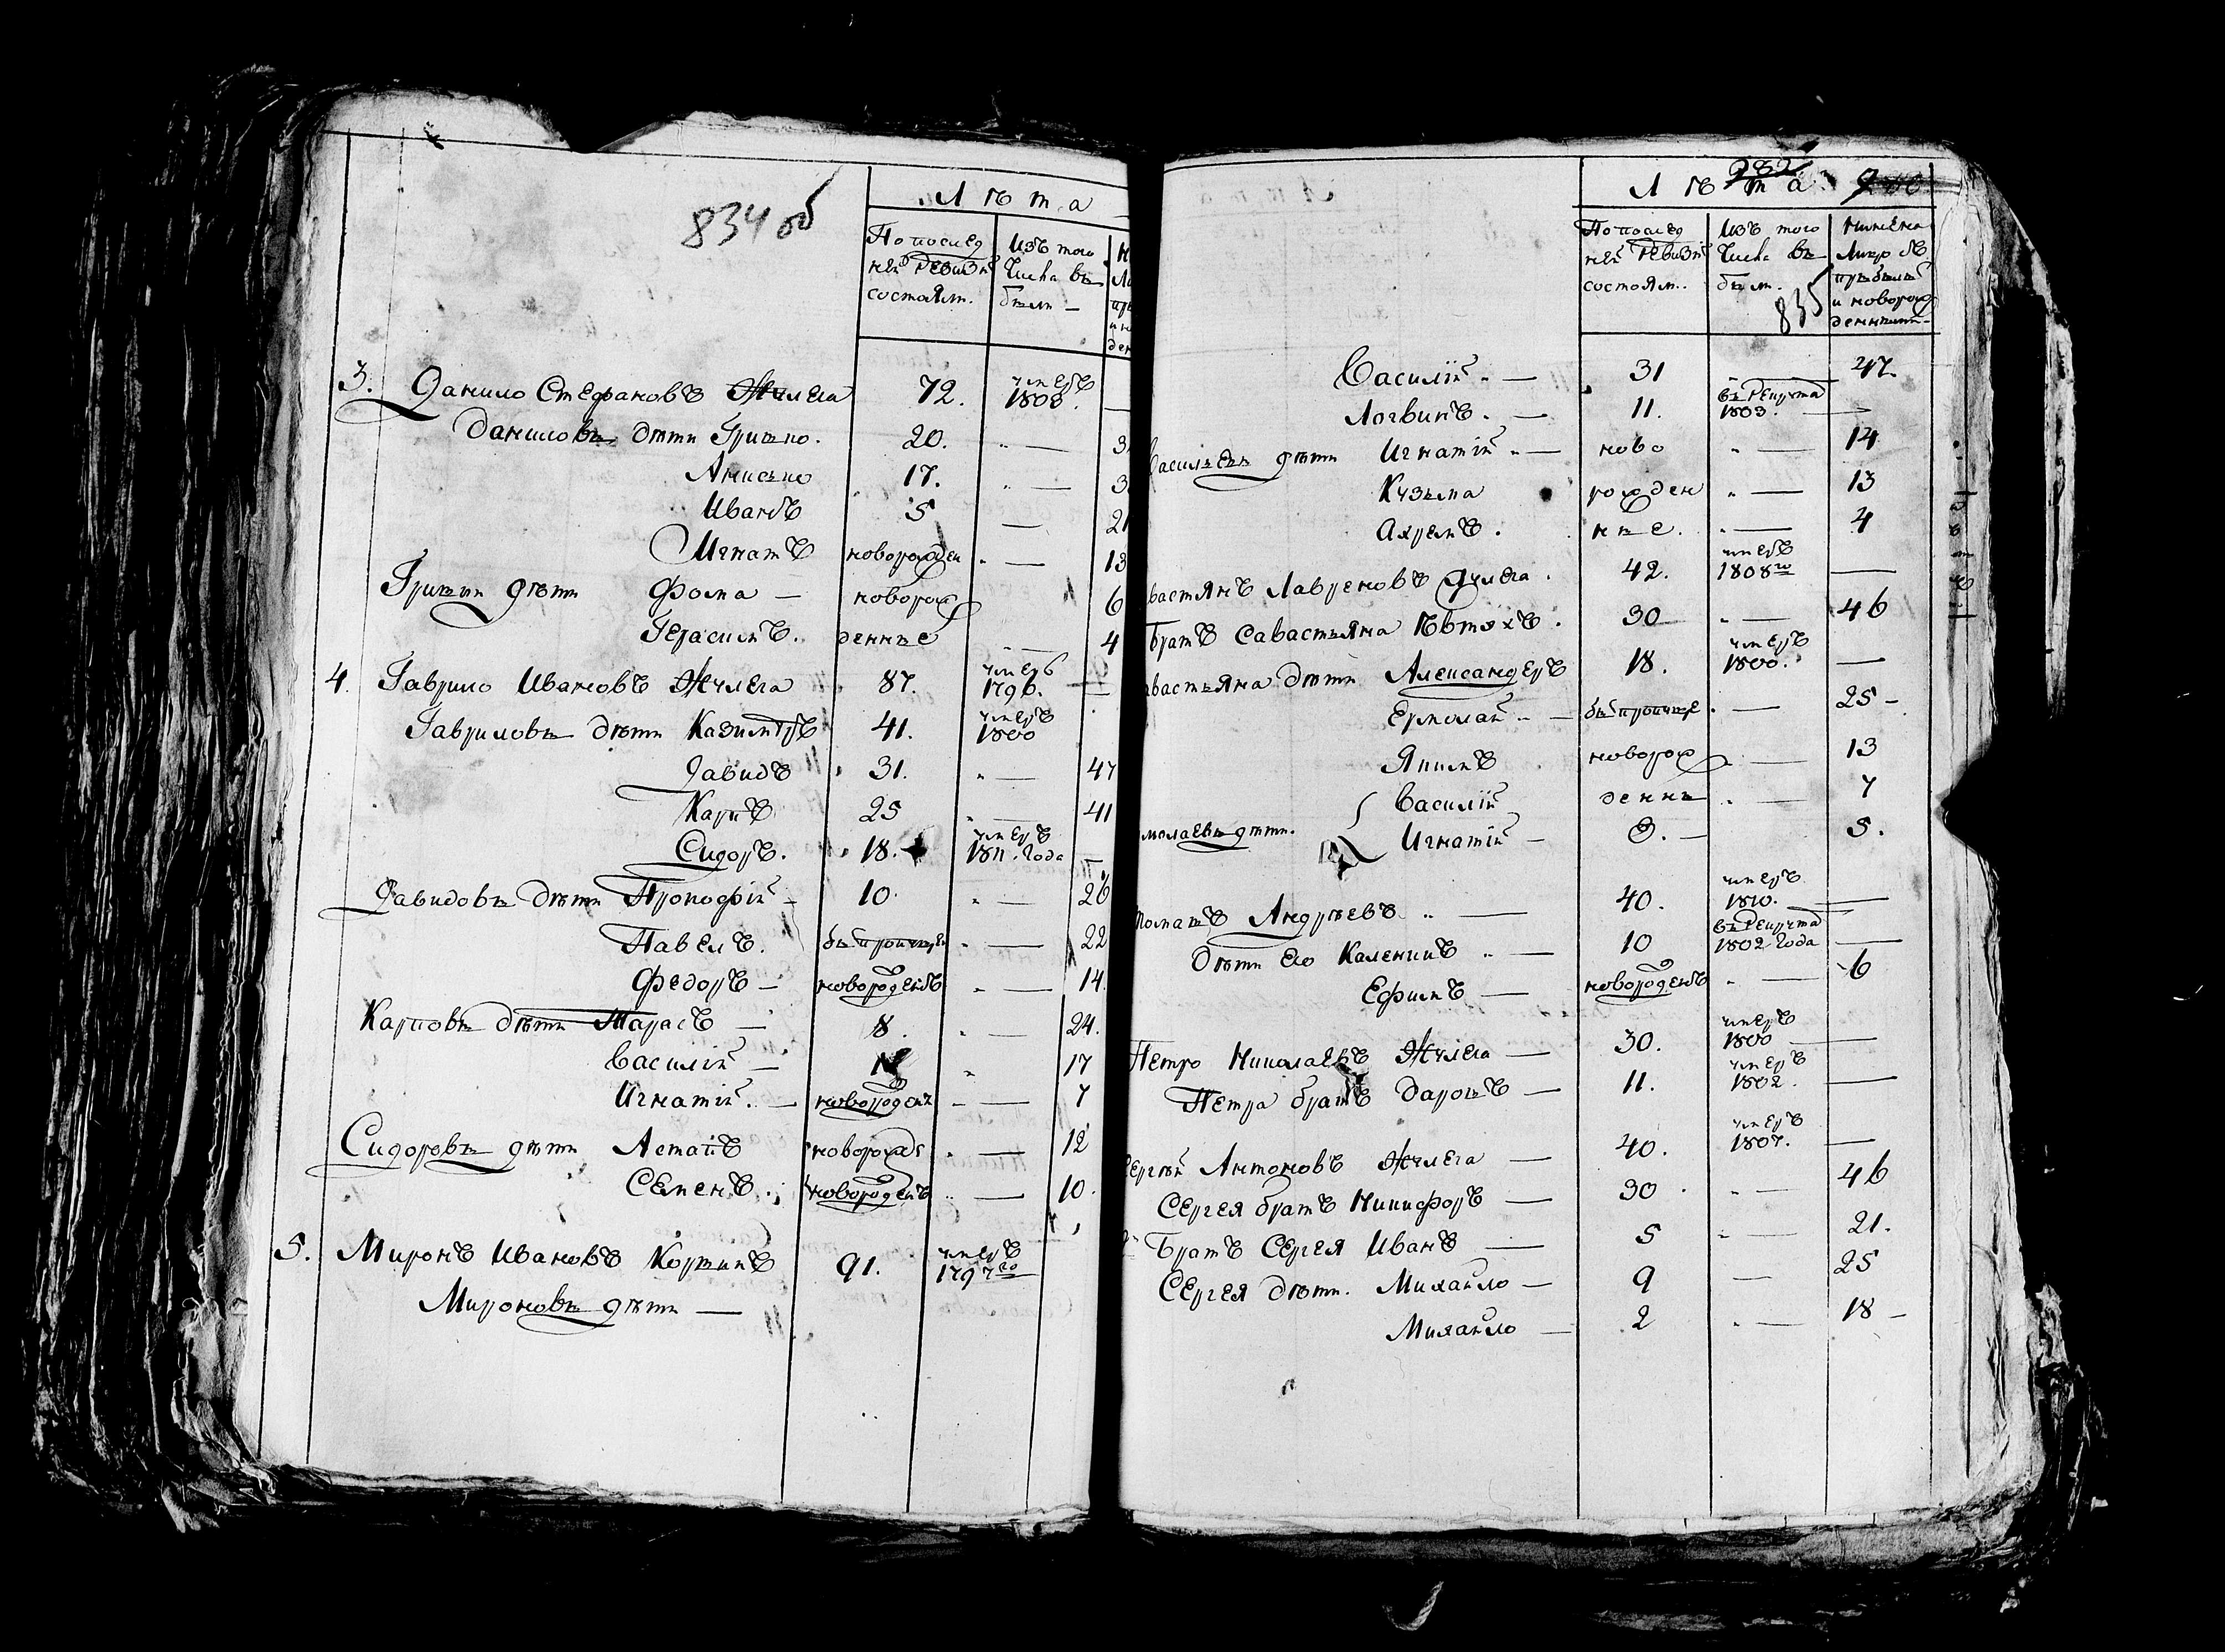 834 об
Лѣта
По послед
ней ревизіи
состояли.
Изъ того
числа вы
были —
3. Данило Стефановъ Жулега 72. умеръ 1808.
Даниловы дѣти Гришко. 20. " —
Анисько 17. " —
Иванъ 5 — 21
Игнатъ новорожден " — 13
Гришки дѣти Фома — новорож 6
Герасимъ. денные " — 4
4. Гаврило Ивановъ Жулега 87. умеръ 1796. —
Гавриловы дѣти Казимѣръ 41. умеръ 1800
Давидъ 31. " — 47
Карпъ 25 " — 41
Сидоръ. 18. умеръ 1811. Года —
Давидовы дѣти Прокофій — 10. " — 26
Павелъ. бывъ пропущен " — 22
Федоръ — новорожденъ " — 14.
Карповы дѣти Тарасъ — 8. " — 24.
Василій — " 17
Игнатій. — новорожден — 7
Сидоровы дѣти Астапъ новорожде " — 12
Семенъ. новорожденъ " — 10.
5. Миронъ Ивановъ Коржикъ 91. умеръ 1797го
Мироновы дѣти —
282
Лѣта
835
По послед
ней ревизіи
состояли.
Изъ того
числа вы
были.
Ныне на
лицо съ
прибылы
и новорож
денными
Василій " — 31 " 47.
Логвинъ. — 11. въ рекруты 1803. —
Васильевы дѣти Игнатій " — ново " — 14
Кузьма рожден " — 13
Ахремъ. ные. " — 4
вастянъ Лавреновъ Жулега. 42. умеръ 1808го —
Братъ Савастьяна Евтухъ. 30 " — 46
вастьяна дѣти Александеръ 18. умеръ 1800. —
Ермолай " — бывъ пропуще " — 25 —
Якимъ новорож " — 13
Василій денны " — 7
молаевы дѣти. Игнатій — е. — 5.
Андрѣевъ " — 40. умеръ 1810. —
Дѣти его Каленикъ " — 10 въ рекруты 1802 Года —
Ефимъ — новорожденъ " — 6
Петро Николаевъ Жулега — 30. умеръ 1800 —
Петра братъ Дарошъ — 11. умеръ 1802. —
Сергѣй Антоновъ Жулега — 40. умеръ 1807. —
Сергея братъ Никифоръ — 30 " — 46
Братъ Сергея Иванъ — 5 " — 21.
Сергея дѣти. Михайло — 9 — 25
Михайло — 2 " — 18 —